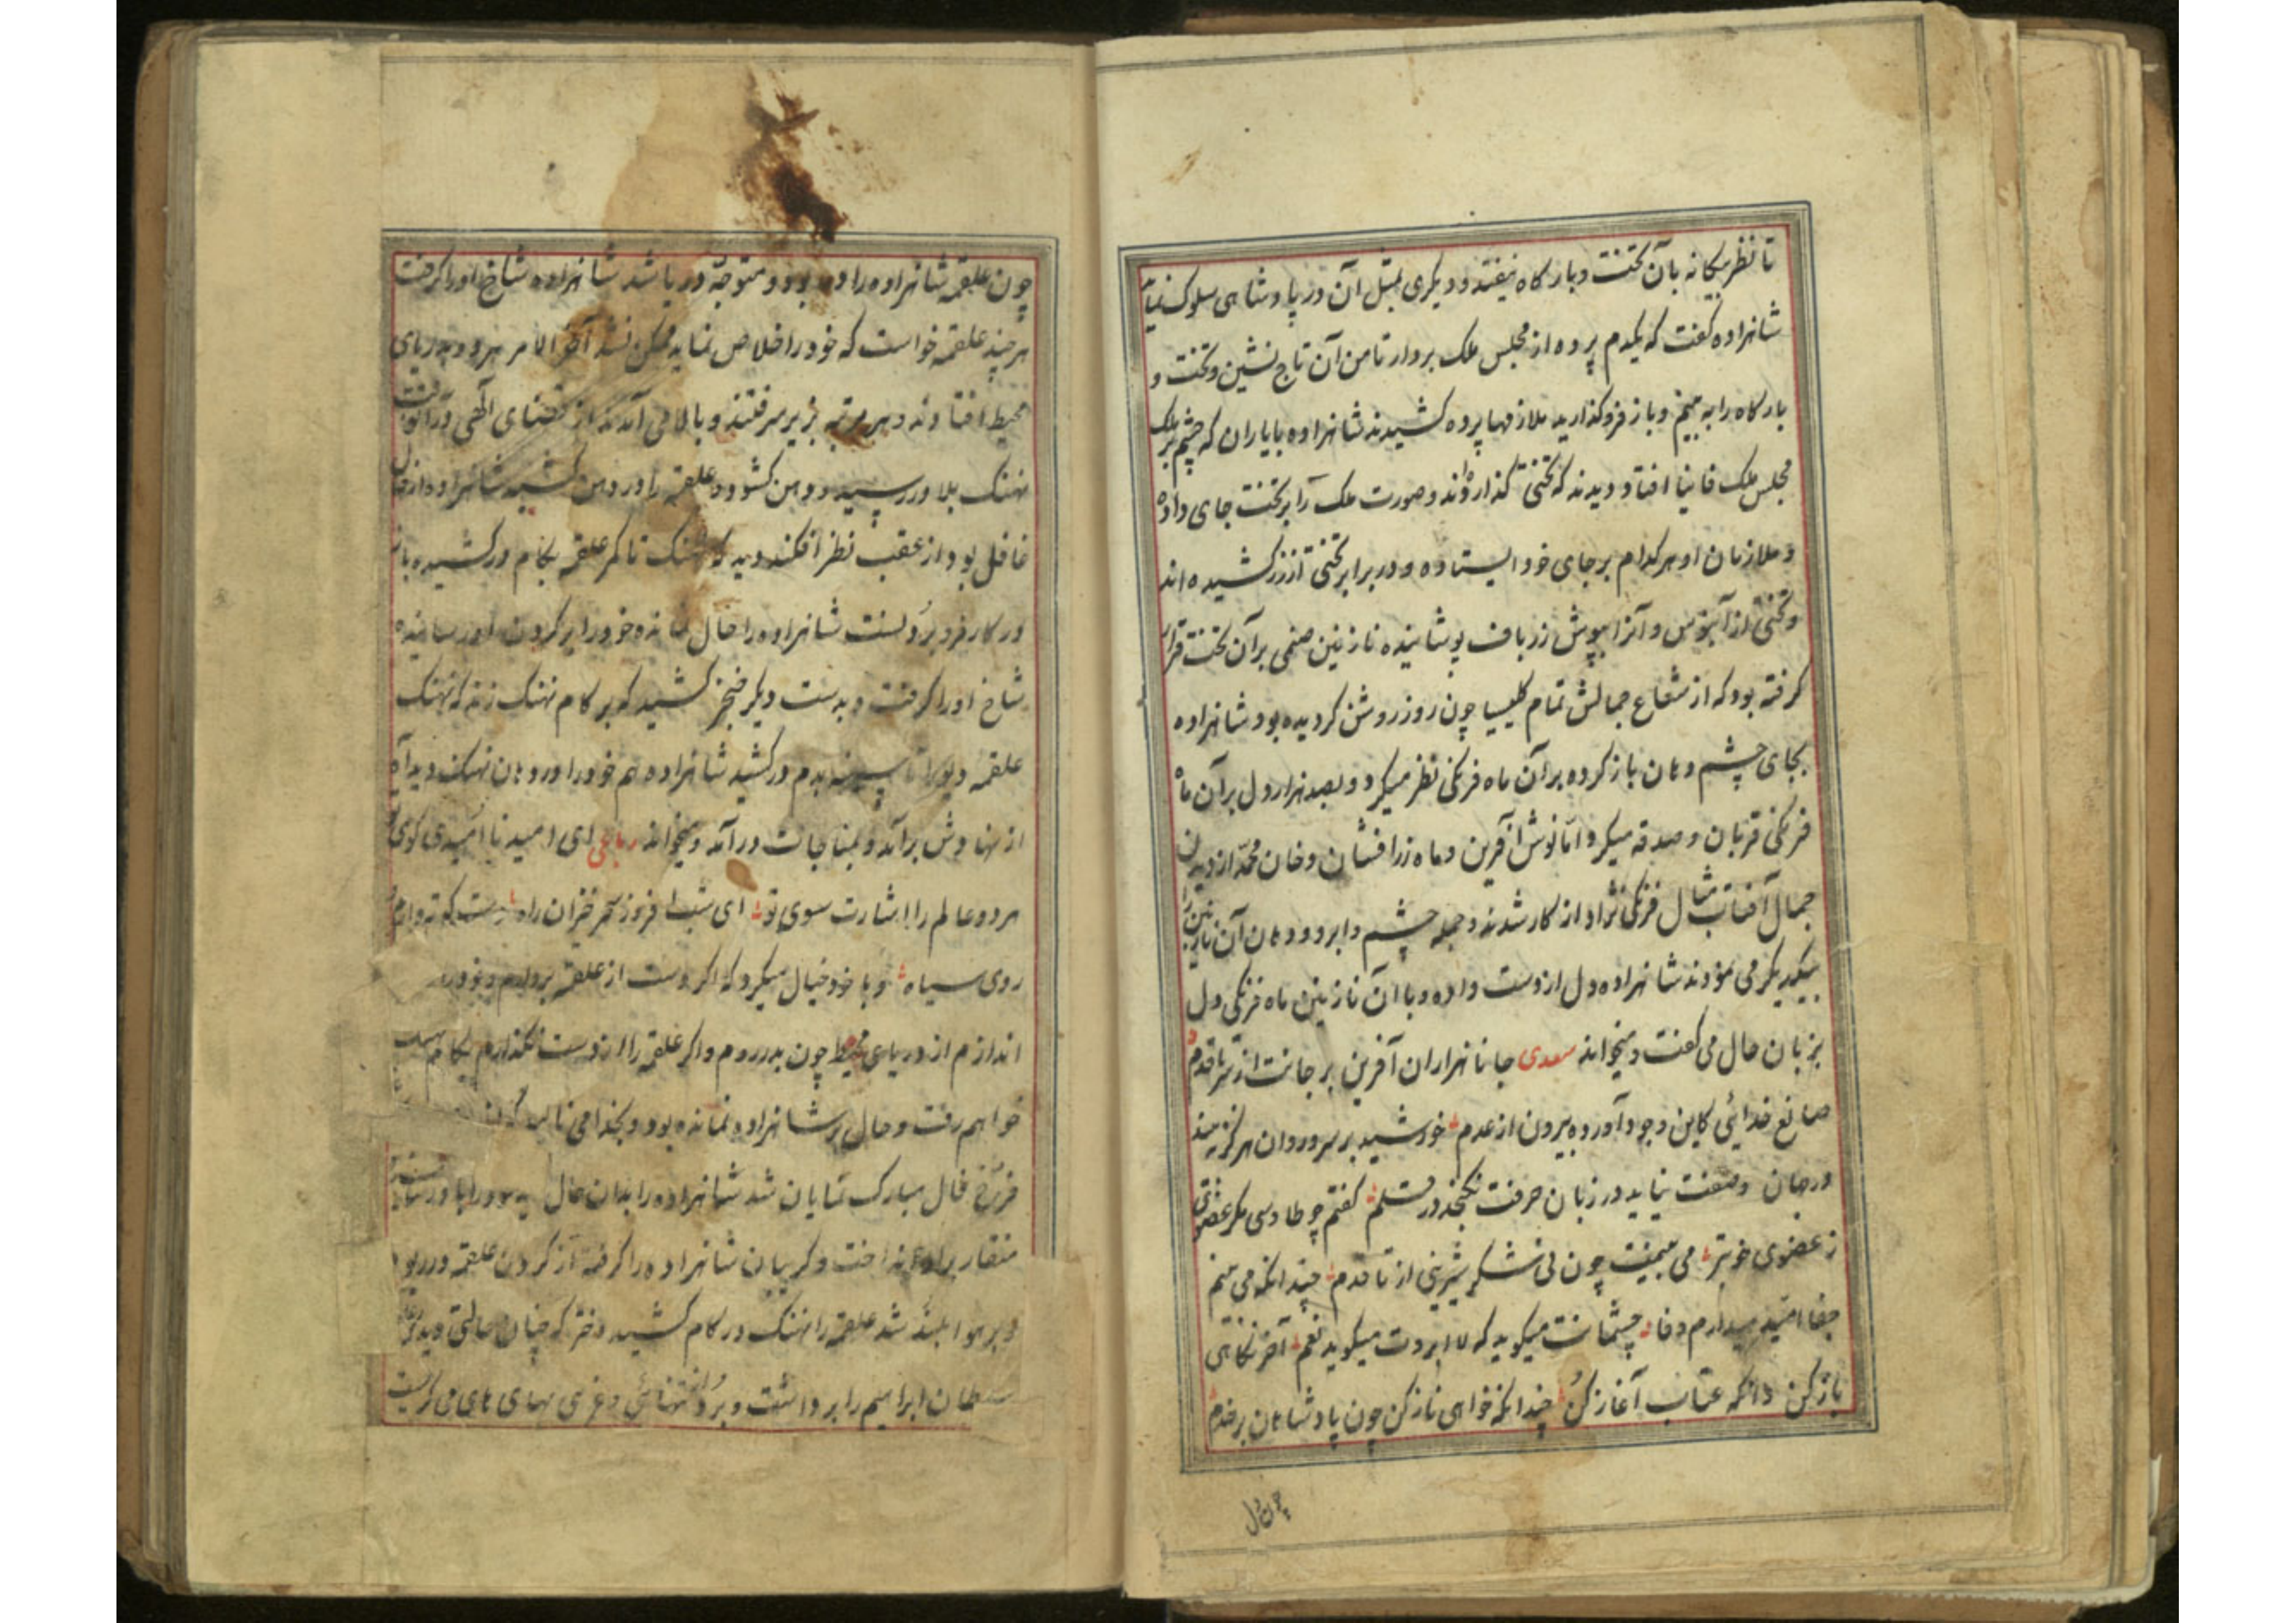 تا نظر بیکانه بآن تخت و بارکاه نیفتد و دیکری بمثل آن در پادشاهی سلوک نماید
شاهزاده کفت که یکدم پرده از مجلس ملک بردار تا من آن تاج نشین و تخت و
بارکاه را به بینم و باز فرو کذارید ملازمها پرده کشیدند شاهزاده با یاران که چشم بر
مجلس ملک فانیا افتاد دیدند که تختی کذارده‌اند و صورت ملک را بر تخت جای داده
و ملازمان او هر کدام بر جای خود ایستاده و در برابر تختی از زر کشیده اند
و تختی از آبنوس و آنرا بپوش زرباف پوشانیده نازنین صنمی بر آن تخت قرار
کرفته بود که از شعاع جمالش تمام کلیسیا چون روز روشن کردیده بود شاهزاده
بجای چشم دهان باز کرده بر آن ماه فرنکی نظر میکرد و بصد هزار دل بر آن ماه
فرنکی قربان و صدقه میکرد اما نوش آفرین و ماه زرافشان و خان محمد از دیدن
جمال آفتاب مثال فرنکی نژاد از کار شدند و جمله چشم و ابرو و دهان آن نازنین را
بیکدیکر می نمودند شاهزاده دل از دست داده و با آن نازنین ماه فرنکی دل
بزبان حال می کفت و میخواند سعدی جانا هزاران آفرین بر جانت از سر تا قدم
صانع خدائی کاین وجود آورده بیرون از عدم خورشید بر سرو روان هرکز ندیدند
در جهان وصفت نیاید در زبان حرفت نکنجد در قلم کفتم چو طاوسی مکر عضوی
ز عضوی خوبتر می بینمت چون نی شکر شیرینی از تا قدم چندانکه می بینم
جفا امید میدارم وفا چشمانت میکوید که لا ابروت میکوید نعم آخر نکاهی
باز کن وانکه عتاب آغاز کن چندانکه خواهی ناز کن چون پادشاهان بر خدم
چون دل
چون علقمه شاهزاده را متوجه دریا شد شاهزاده شاخ او را کرفت
هر چند علقمه خواست که خود را خلاص نماید ممکن نشد آخر الامر هر دو بدریای
محیط افتادند و هر مرتبه بزیر میرفتند و بالا می آمدند از قضای الهی در آنوقت
نهنک بلا در رسید و دهن کشود و علقمه را در دهن کشید شاهزاده از قفا
غافل بود از عقب نظر افکند دید که نهنک تا کمر علقمه بکام در کشیده باز
در کار فرو برد نست شاهزاده را حال نماند و خود را بر کردن او رسانیده
شاخ او را کرفت و بدست دیکر خنجر کشید که بر کام نهنک زند که نهنک
علقمه دیو را تا سینه بدم در کشید شاهزاده هم خود را در دهان نهنک دید آه
از نهادش برآمد و بمناجات در آمد و میخواند رباعی ای امید نا امیدی کوی تو
هر دو عالم را اشارت سوی تو ای شب افروز سحر خیزان راه
روی سیاه و با خود خیال میکرد که اکر دست از علقمه بردارم و خود را
اندازم از دریای محیط چون بدر روم و اکر علقمه را از دست نکذارم بکام نهنک
خواهم رفت و حال بر شاهزاده نمانده بود و بخدا می نالید که
فرخ فال مبارک نمایان شد شاهزاده را بدان حال
منقار انداخت و کریبان شاهزاده را کرفته از کردن علقمه در ربود
و بر هوا بلند شد علقمه را نهنک در کام کشید دختر که چنان حالتی دید
سلطان ابراهیم را برداشت و تنهائی و غریبی بهای های می کریست